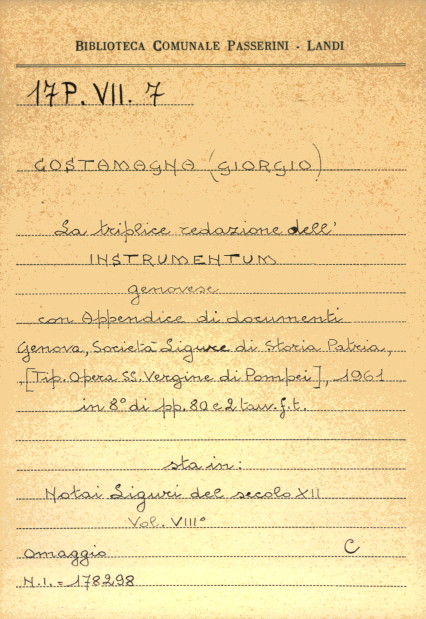 BIBLIOTECA COMUNALE PASSERINI - LANDI
17 P. VII. 7
COSTAMAGNA (GIORGIO)
La triplice redazione dell'
INSTRUMENTUM
genovese
con Appendice di documenti
Genova, Società Ligure di Storia Patria,
[Tip. Opera SS. Vergine di Pompei], 1961
in 8° di pp. 80 e 2 tav. f. t.
sta in:
Notai Liguri del secolo XII
Vol. VIII°
omaggio C
N.I. = 178298